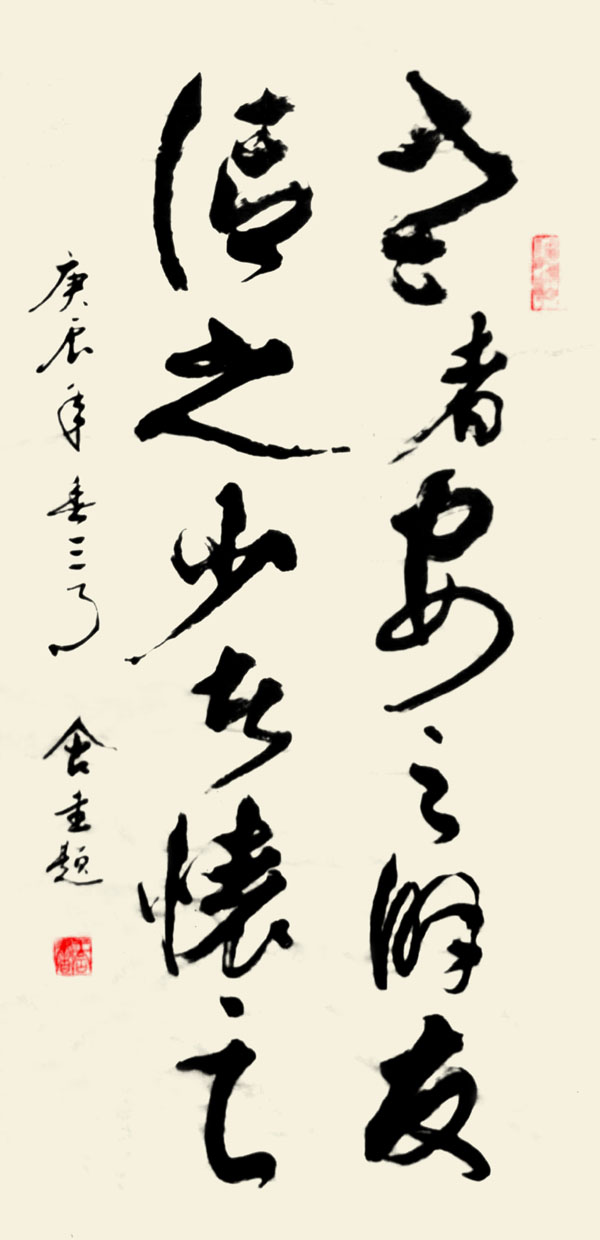 老者安之朋友
信之少者懷之
庚辰年春三月 舍題